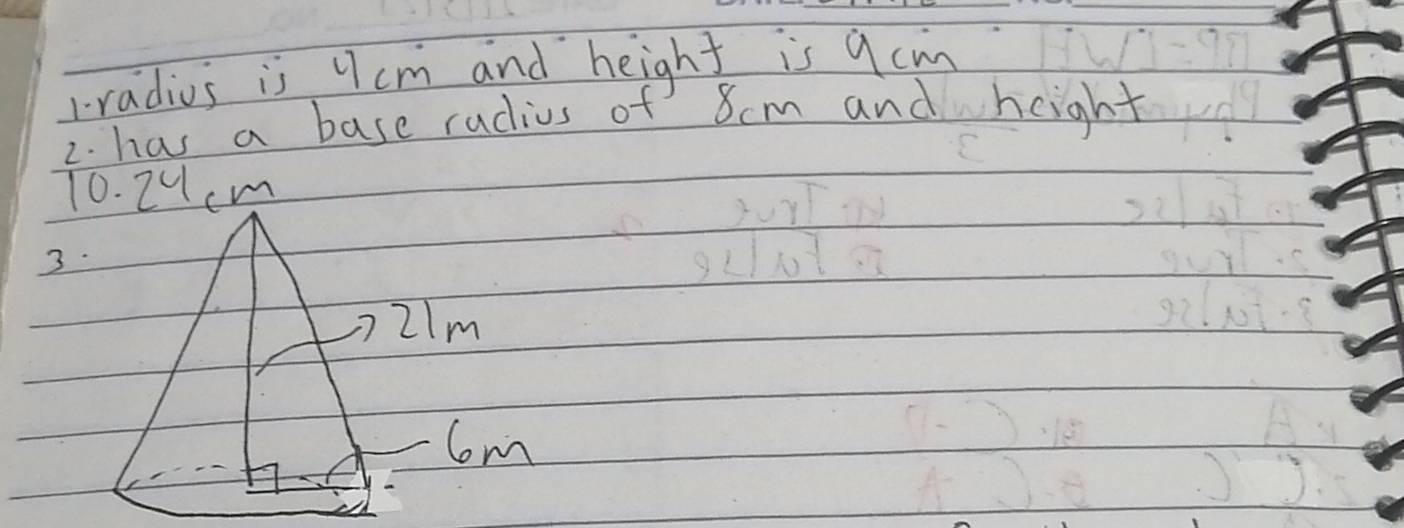 1. radius is 4cm and height is 9cm
2. has a base radius of 8cm and height
10.24cm
3.
21m
6m